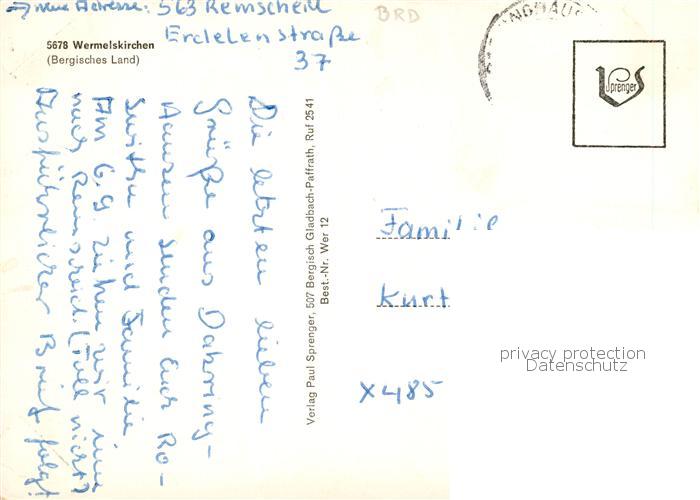 → neue Adresse: 563 Remscheid
Erdelenstraße
37
BRD
5678 Wermelskirchen
(Bergisches Land)
Die letzten lieben
Grüße aus Dabring-
hausen senden Euch Ro-
switha und Familie
Am 6.9. ziehen wir um
nach Remscheid. (Toll nicht?)
Ausführlicher Brief folgt!
Verlag Paul Sprenger, 507 Bergisch Gladbach-Paffrath, Ruf 2541
Best.-Nr. Wer 12
Sprenger
Familie
Kurt
X485
privacy protection
Datenschutz